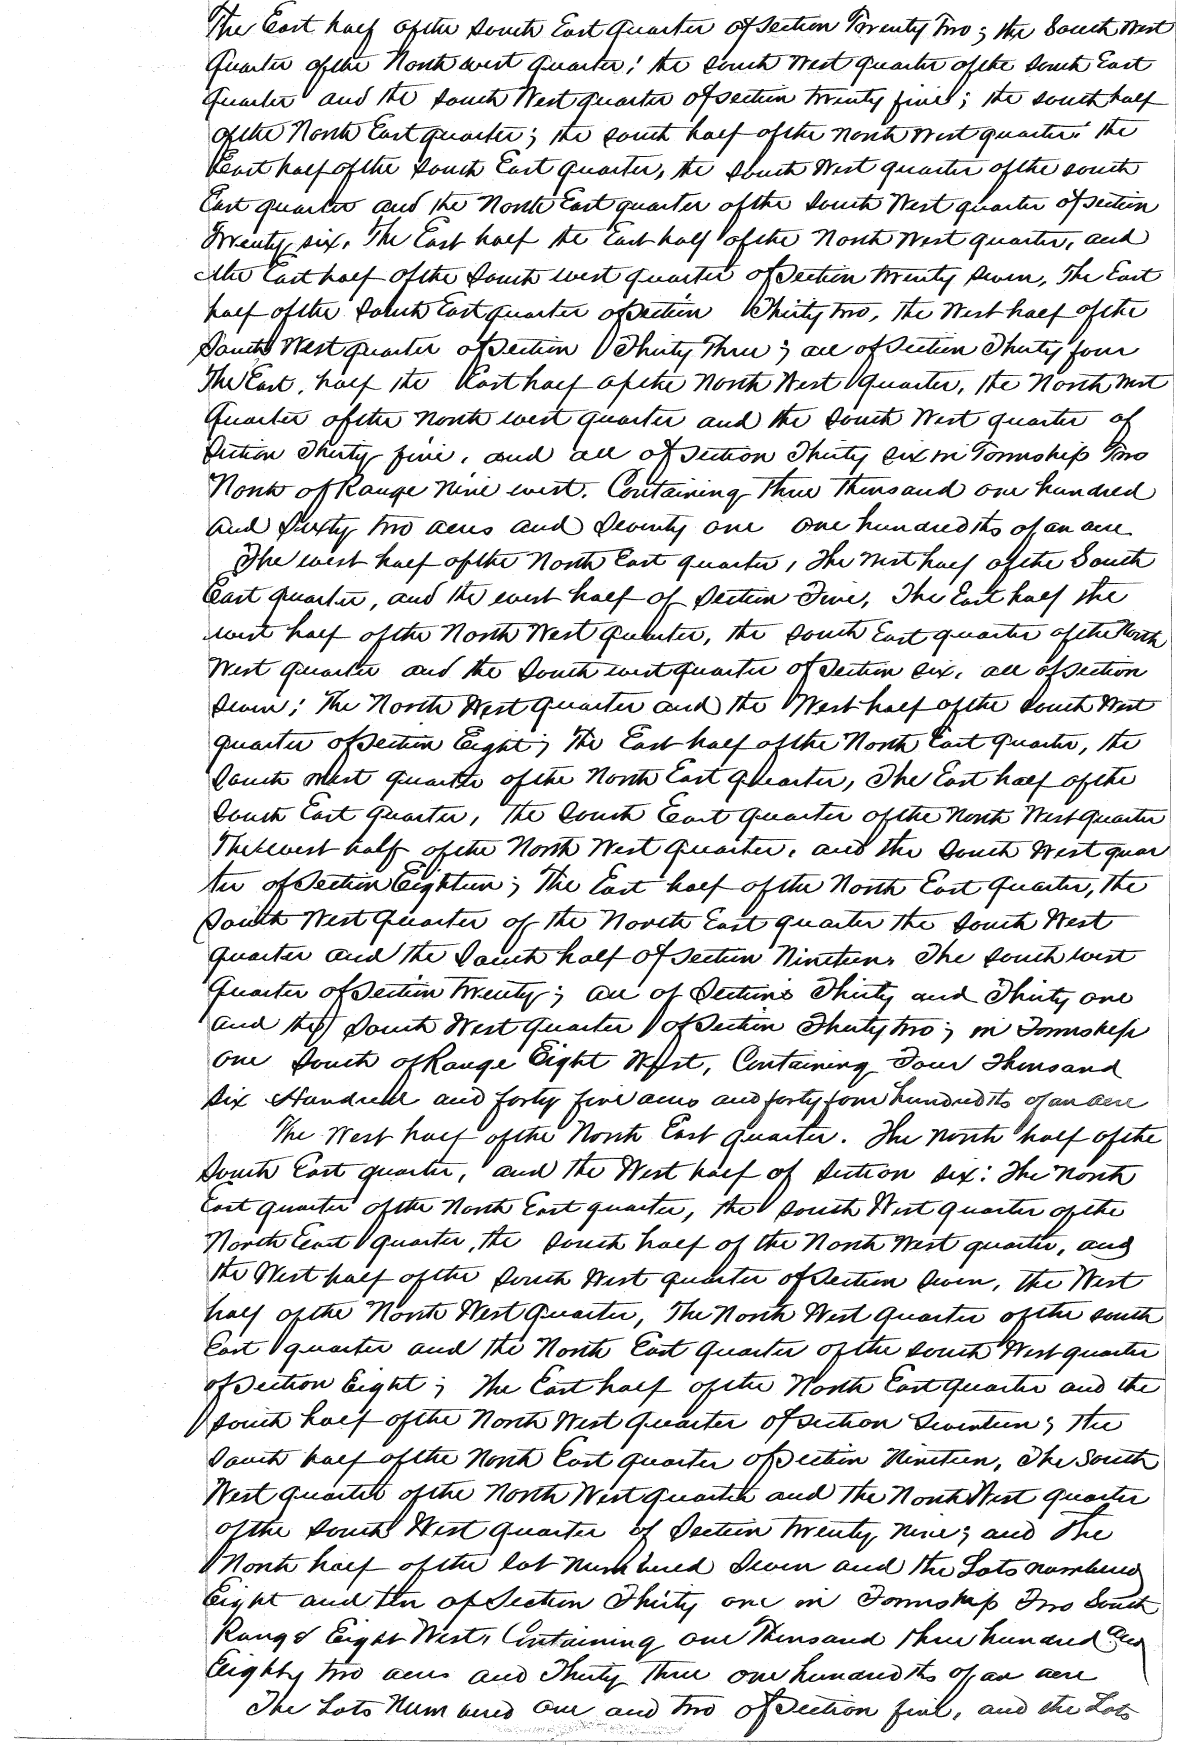 The East half of the South East quarter of Section Twenty Two; the South West
Quarter of the North west quarter; the South West quarter of the South East
quarter and the South West quarter of Section twenty five; the South half
of the North East quarter; the South half of the North West quarter; the
East half of the South East quarter, the South West quarter of the South
East quarter and the North East quarter of the South West quarter of Section
Twenty six. The East half the East half of the North West quarter, and
the East half of the South west quarter of Section twenty Seven, The East
half of the South East quarter of Section Thirty two, the West half of the
South West quarter of Section Thirty Three; all of Section Thirty four
The East half the East half of the North West quarter, the North West
Quarter of the North west quarter and the South West quarter of
Section Thirty five, and all of Section Thirty six in Township Two
North of Range Nine west. Containing Three thousand one hundred
and Sixty two acres and Seventy one one hundredths of an acre
The west half of the North East quarter, The West half of the South
East quarter, and the west half of Section Five, The East half the
west half of the North West quarter, the South East quarter of the North
West quarter and the South west quarter of Section six, all of Section
Seven; The North West quarter and the West half of the South West
quarter of Section Eight; The East half of the North East quarter, the
South West quarter of the North East quarter, The East half of the
South East quarter, the South East quarter of the North West quarter
The west half of the North West quarter, and the South West quar
ter of Section Eighteen; The East half of the North East quarter, the
South West quarter of the North East quarter the South West
quarter and the South half of Section Nineteen. The South west
Quarter of Section Twenty; all of Sections Thirty and Thirty one
and the South West quarter of Section Thirty two; in Township
one South of Range Eight West, Containing Four Thousand
six Hundred and forty five acres and forty four hundredths of an acre
The West half of the North East quarter. The North half of the
South East quarter, and the West half of Section six: The North
East quarter of the North East quarter, the South West quarter of the
North East quarter, the South half of the North West quarter, and
the West half of the South West quarter of Section Seven, the West
half of the North West quarter, The North West quarter of the South
East quarter and the North East quarter of the South West quarter
of Section Eight; The East half of the North East quarter and the
South half of the North West quarter of Section Seventeen; The
South half of the North East quarter of Section Nineteen, The South
West quarter of the North West quarter and the North West quarter
of the South West quarter of Section twenty nine; and The
North half of the lot Numbered Seven and the Lots numbered
Eight and ten of Section Thirty one in Township Two South
Range Eight West, Containing one Thousand three hundred and
Eighty two acres and Thirty three one hundredths of an acre
The Lots Numbered One and two of Section five, and the Lots